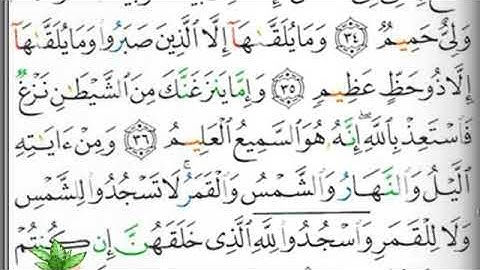 وَلِيٌّ حَمِيمٌ ٣٤ وَمَا يُلَقَّىٰهَآ إِلَّا ٱلَّذِينَ صَبَرُوا۟ وَمَا يُلَقَّىٰهَآ
إِلَّا ذُو حَظٍّ عَظِيمٍ ٣٥ وَإِمَّا يَنزَغَنَّكَ مِنَ ٱلشَّيْطَٰنِ نَزْغٌ
فَٱسْتَعِذْ بِٱللَّهِ إِنَّهُۥ هُوَ ٱلسَّمِيعُ ٱلْعَلِيمُ ٣٦ وَمِنْ ءَايَٰتِهِ
ٱلَّيْلُ وَٱلنَّهَارُ وَٱلشَّمْسُ وَٱلْقَمَرُ لَا تَسْجُدُوا۟ لِلشَّمْسِ
وَلَا لِلْقَمَرِ وَٱسْجُدُوا۟ لِلَّهِ ٱلَّذِى خَلَقَهُنَّ إِن كُنتُمْ